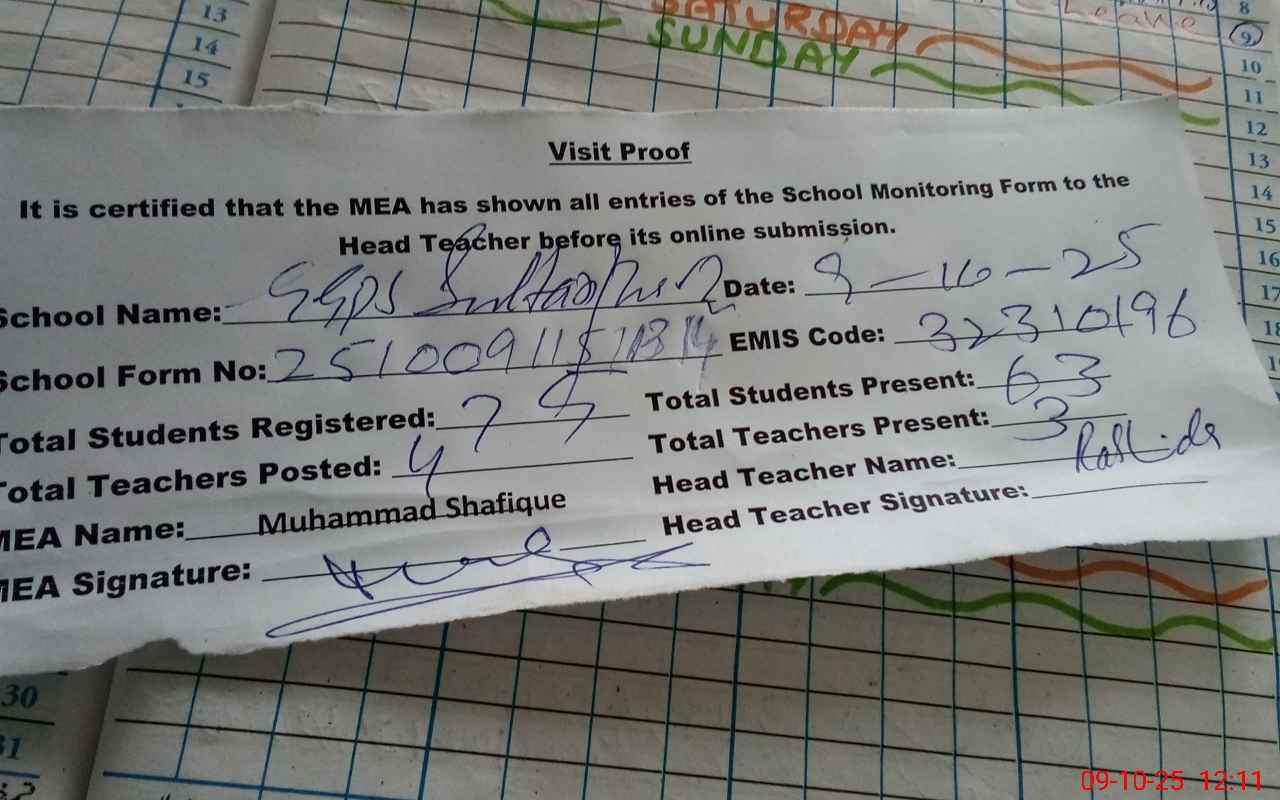 13
14
15
SATURDAY
SUNDAY
Leave
8
9
10
11
12
13
14
15
16
17
18
Visit Proof
It is certified that the MEA has shown all entries of the School Monitoring Form to the
Head Teacher before its online submission.
School Name: GGPS Date: 9-10-25
School Form No: EMIS Code: 32310196
Total Students Registered: 75 Total Students Present: 63
Total Teachers Posted: 4 Total Teachers Present: 3
MEA Name: Muhammad Shafique Head Teacher Name: Rashida
MEA Signature: Head Teacher Signature:
30
31
09-10-25 12:11